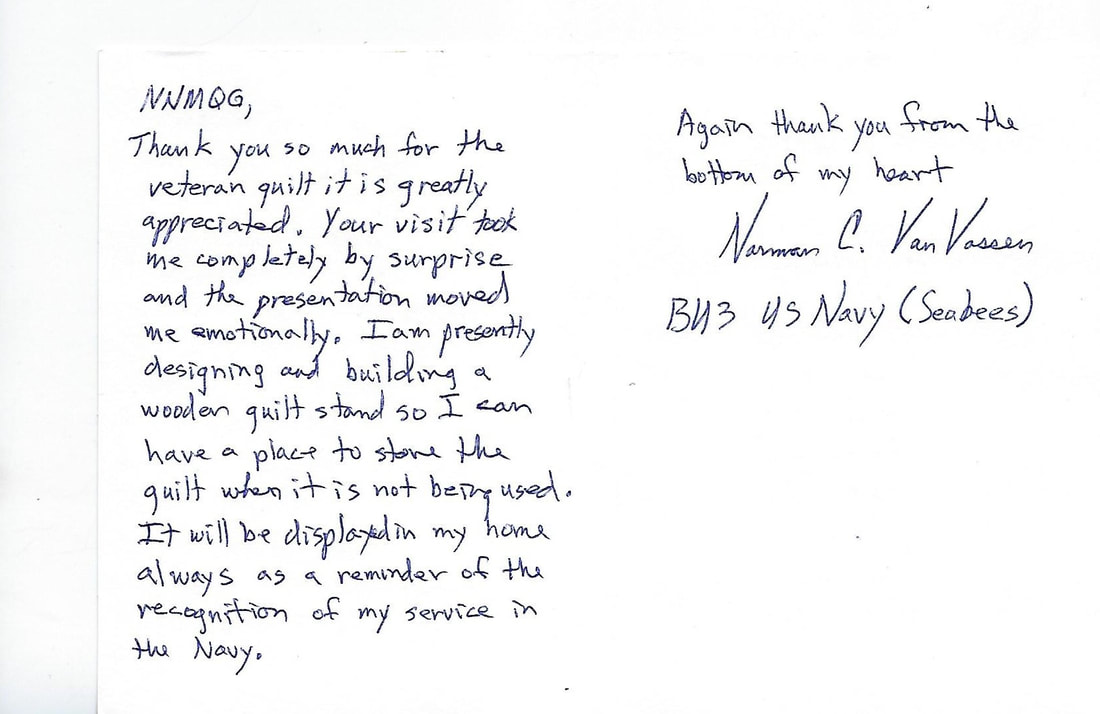 NNMQG,
Thank you so much for the
veteran quilt it is greatly
appreciated. Your visit took
me completely by surprise
and the presentation moved
me emotionally. I am presently
designing and building a
wooden quilt stand so I can
have a place to store the
quilt when it is not being used.
It will be displayed in my home
always as a reminder of the
recognition of my service in
the Navy.
Again thank you from the
bottom of my heart
Norman C. Van Vossen
BU3 US Navy (Seabees)